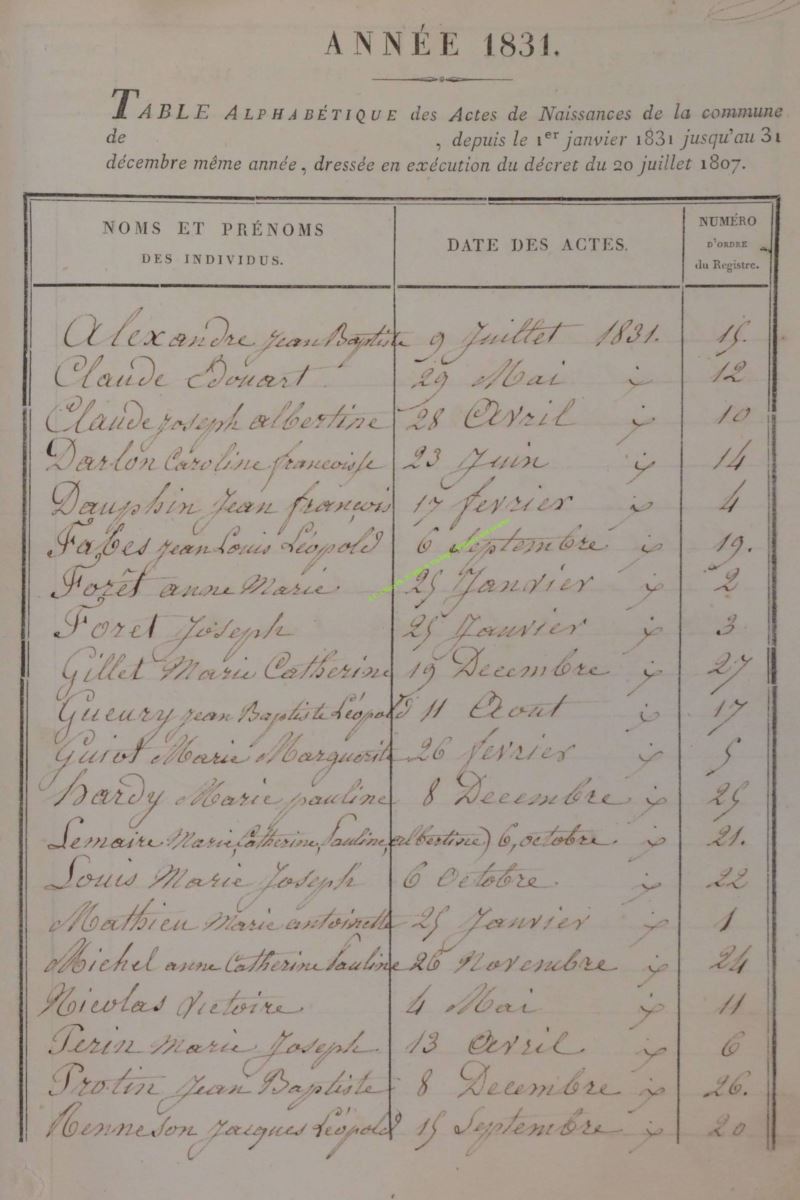 ANNÉE 1831.
TABLE ALPHABÉTIQUE des Actes de Naissances de la commune
de , depuis le 1er janvier 1831 jusqu'au 31
décembre même année, dressée en exécution du décret du 20 juillet 1807.
NOMS ET PRÉNOMS DES INDIVIDUS. DATE DES ACTES. NUMÉRO D'ORDRE du Registre.
Alexandre Jean Baptiste 9 Juillet 1831. 15.
Claude Edouart 29 Mai 12
Claude Joseph albertine 28 Avril 10
Darlon Caroline francoisse 23 Juin 14
Dauphin Jean françois 17 fevrier 4
Fabes Jean Louis Léopold 6 Septembre 19.
Forêt anne Marie 25 Janvier 2
Foret Joseph 25 Janvier 3
Gillet Marie Catherine 19 Decembre 27
Gueury Jean Baptiste Léopold 11 Aout 17
Guiot Marie Marguerite 26 fevrier 5
hardy Marie pauline 8 Decembre 25
Lemaire Marie, Catherine, Pauline, albertine) 6, octobre. 21.
Louis Marie Joseph 6 Octobre 22
Mathieu Marie antoinette 25 Janvier 1
Michel anne Catherine Pauline 26 Novembre 24
Nicolas Victoire 4 Mai 11
Perin Marie Joseph 13 Avril 6
Protin Jean Baptiste 8 Decembre 26.
Renneson Jacques Léopold 15 Septembre 20